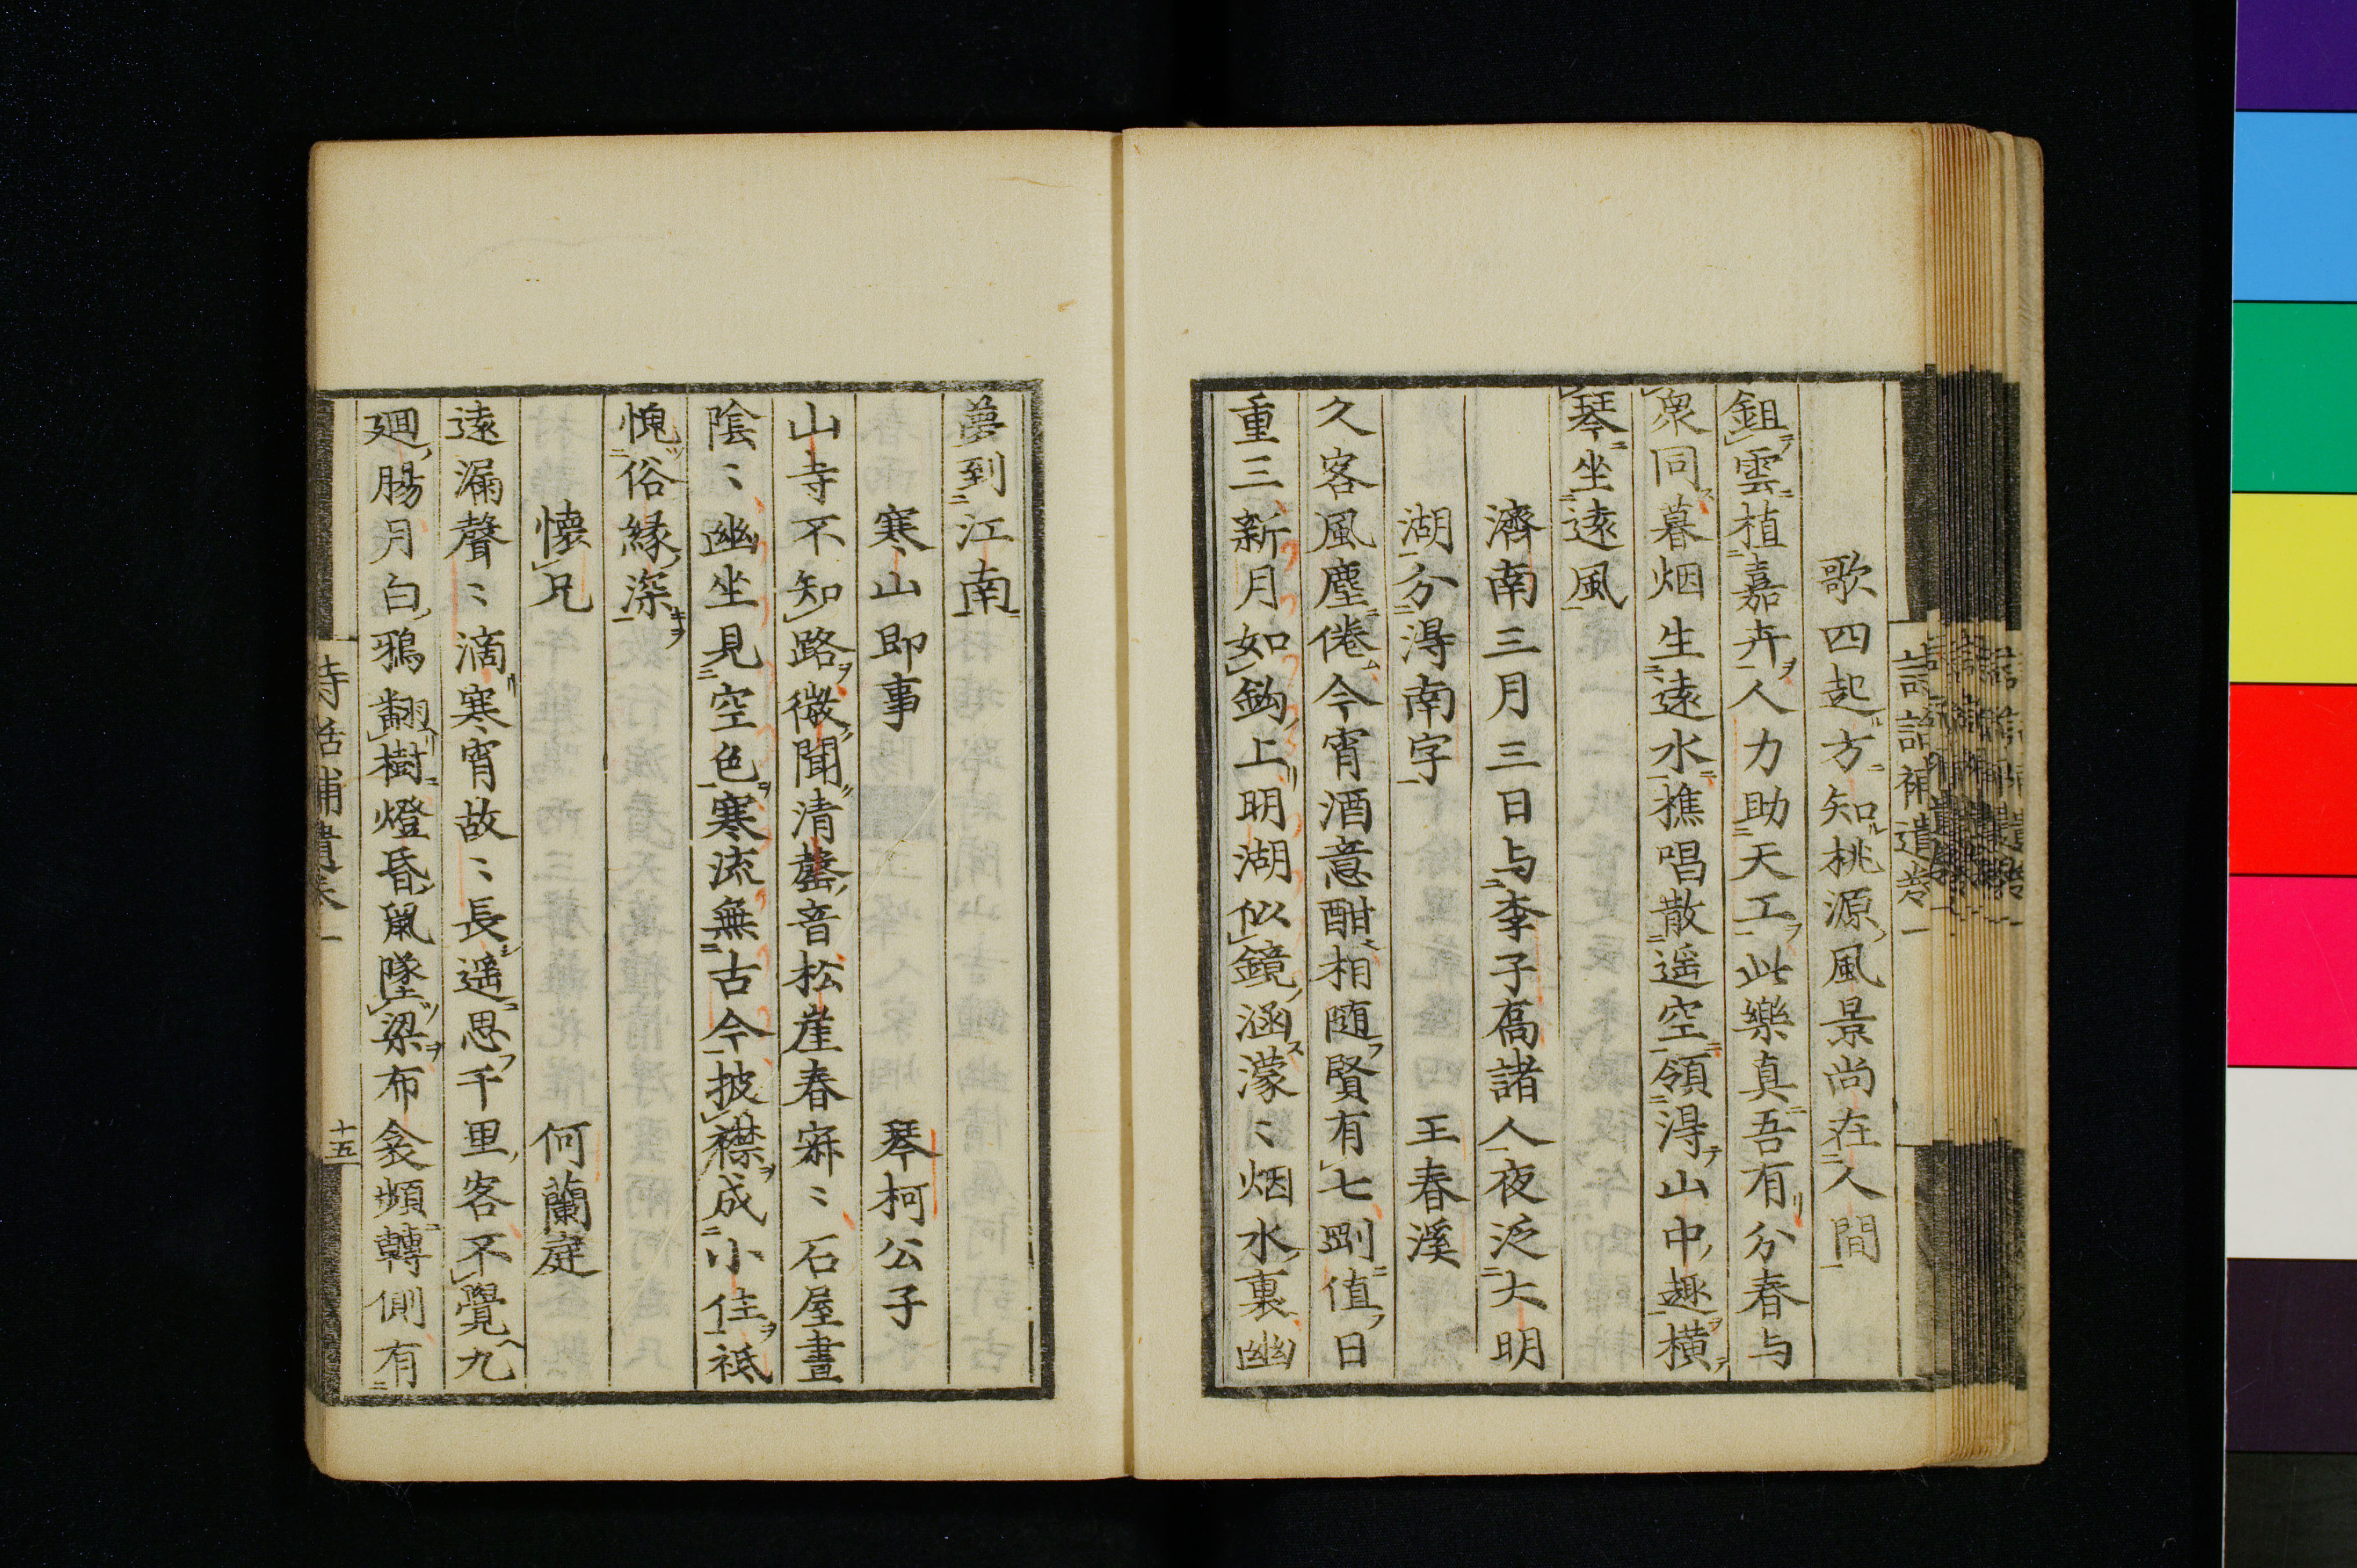 歌四起方知桃源風景尚在人間
鉏雲植嘉卉人力助天工此樂真吾有分春与
衆同暮烟生遠水樵唱散遥空領得山中趣横
琴坐遠風
濟南三月三日与李子高諸人夜泛大明
湖分得南字　王春溪
久客風塵倦今宵酒意酣相随賢有七剛值日
重三新月如鈎上明湖似鏡涵濛〻烟水裏幽
夢到江南
寒山即事　琴柯公子
山寺不知路微聞清磬音松崖春寂〻石屋晝
陰〻幽坐見空色寒流無古今披襟成小住祗
愧俗緣深
懐兄　何蘭庭
遠漏聲〻滴寒宵故〻長遥思千里客不覺九
廻腸月白鴉翻樹燈昏鼠墜梁布衾頻轉側有
詩話補遺卷一
詩話補遺卷一
十五